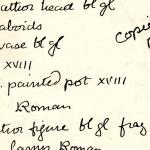 attior head bl gl
aboids
vase bl gl
XVIII
painted pot XVIII
Roman
tior figure bl gl frag
Roman